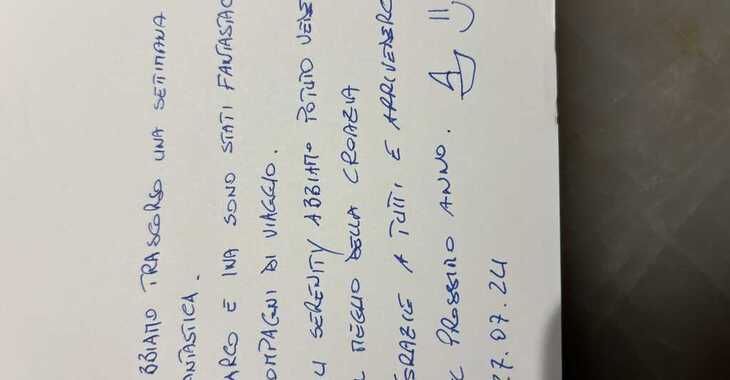 BBIAMO TRASCORSO UNA SETTIMANA
ANTASTICA.
ARCO E INA SONO STATI FANTASTIC
OMPAGNI DI VIAGGIO.
U SERENITY ABBIAMO POTUTO VEDE
L MEGLIO DELLA CROAZIA
GRAZIE A TUTTI E ARRIVEDERC
L PROSSIMO ANNO.
27.07.24